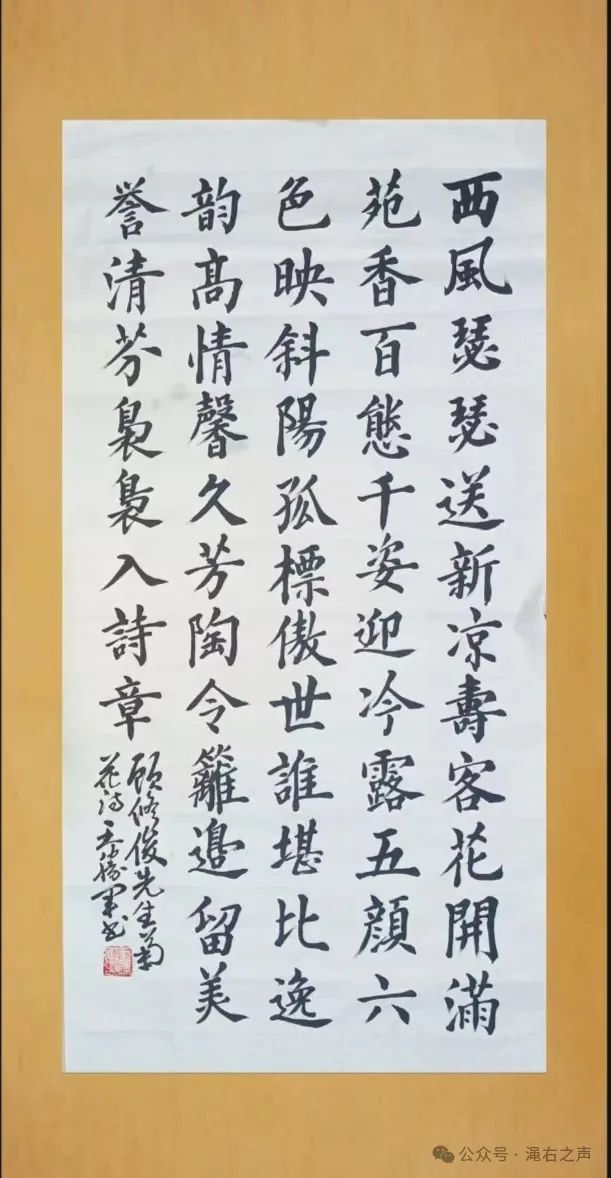 西風瑟瑟送新涼壽客花開滿
苑香百態千姿迎冷露五顏六
色映斜陽孤標傲世誰堪比逸
韵高情馨久芳陶令籬邊留美
誉清芬裊裊入詩章
顾修俊先生菊
花诗
公众号·渑右之声